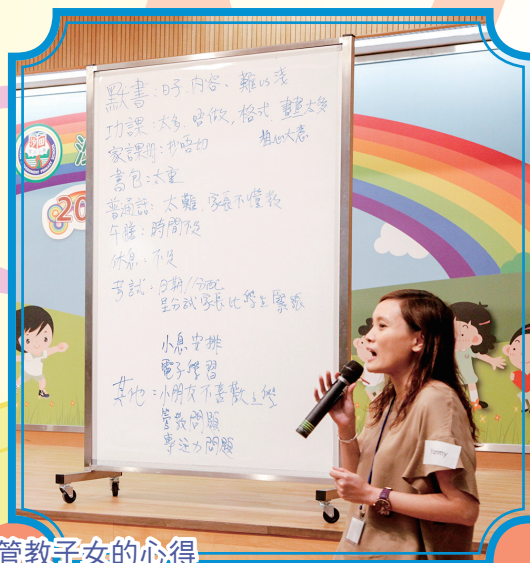 默書：日子、內容、難vs淺
功課：太多、唔做，格式 
粗心大意
家課冊：抄唔切
書包：太重
普通話：太難 家長不懂教
午膳：時間不足
休息：不足
考試：日期/分配
呈分試家長比學生緊張
小息安排
電子學習
其他：小朋友不喜歡上學
管教問題
專注力問題
20
管教子女的心得